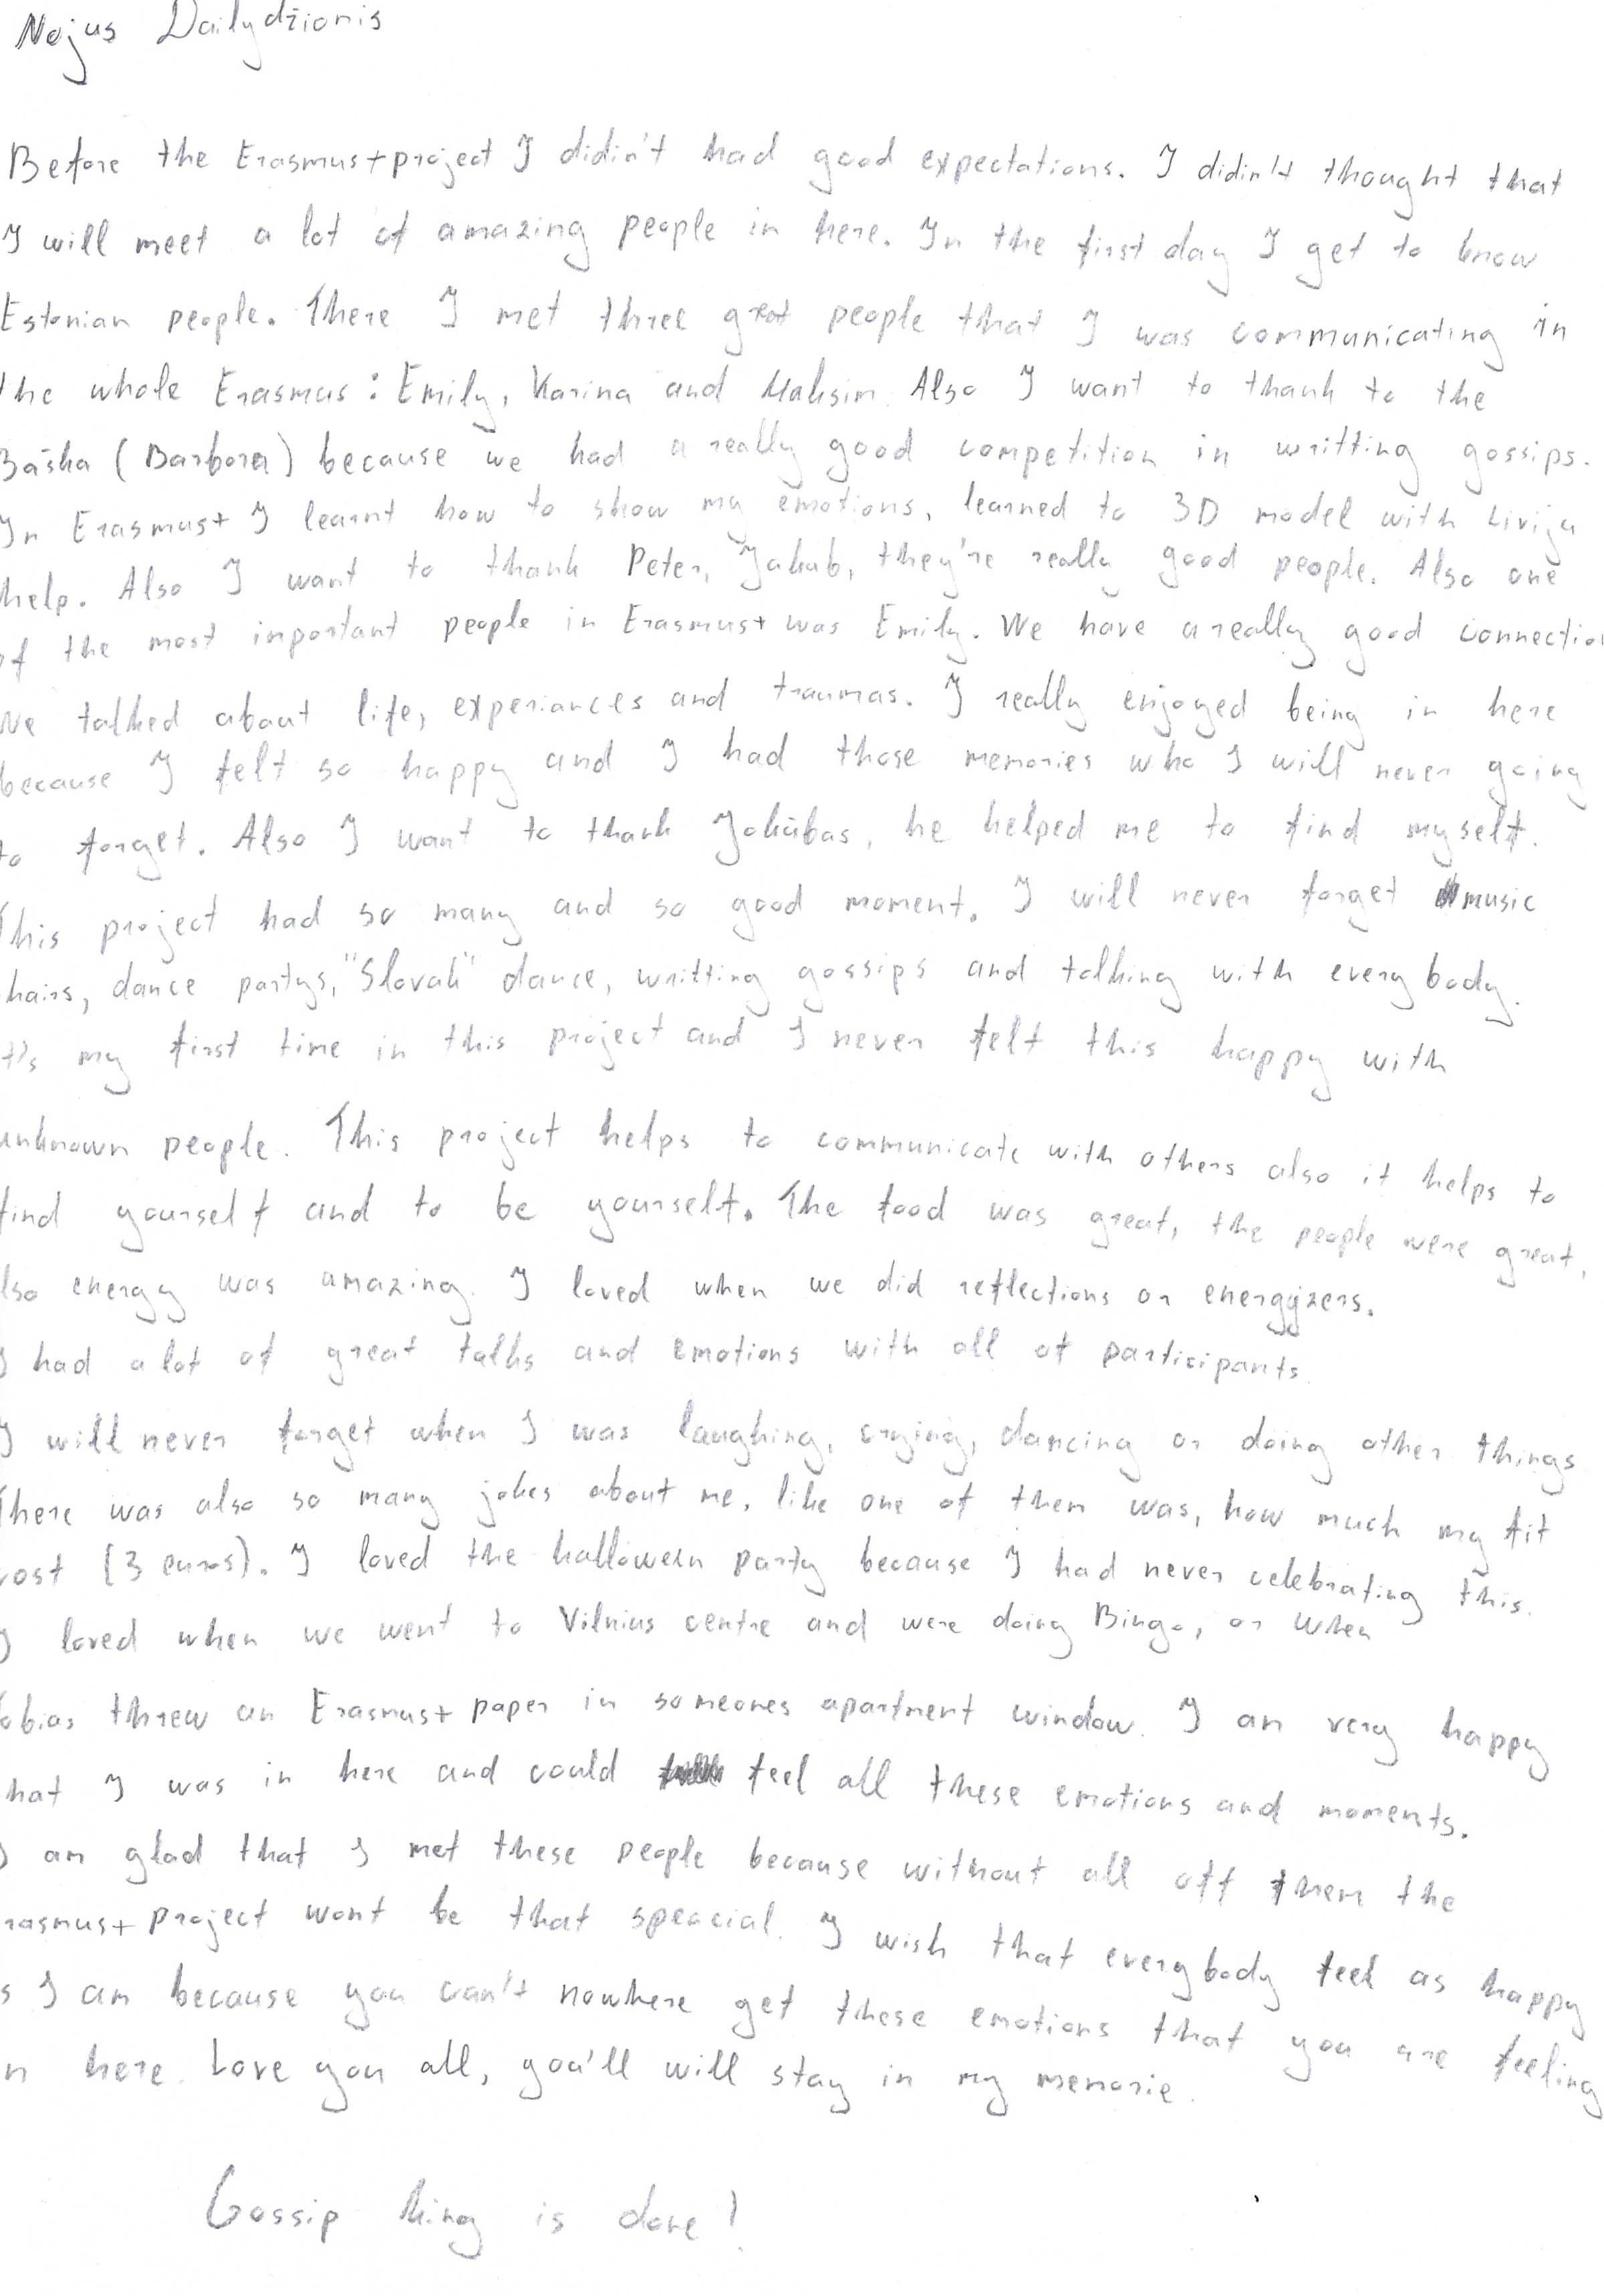 Nojus Dailydžionis
Before the Erasmus+ project I didin't had good expectations. I didin't thought that
I will meet a lot of amazing people in here. In the first day I get to know
Estonian people. There I met three great people that I was communicating in
the whole Erasmus: Emily, Karina and Maksim. Also I want to thank to the
Baška (Barbora) because we had a really good competition in writting gossips.
In Erasmus+ I learnt how to show my emotions, learned to 3D model with Livija
help. Also I want to thank Peter, Jakub, they're really good people. Also one
of the most inportant people in Erasmus+ was Emily. We have a really good connection
We talked about life, experiances and traumas. I really enjoyed being in here
because I felt so happy and I had those memories who I will never going
to forget. Also I want to thank Jokūbas, he helped me to find myself.
This project had so many and so good moment. I will never forget music
hairs, dance partys, "Slovak" dance, writting gossips and talking with everybody.
t's my first time in this project and I never felt this happy with
unknown people. This project helps to communicate with others also it helps to
find yourself and to be yourself. The food was great, the people were great,
lso energy was amazing. I loved when we did reflections or energyzers.
I had a lot of great talks and emotions with all of participants.
I will never forget when I was laughing, crying, dancing or doing other things
There was also so many jokes about me, like one of them was, how much my fit
cost (3 euros). I loved the halloween party because I had never celebrating this.
I loved when we went to Vilnius centre and were doing Bingo, or when
Tobias threw an Erasmus+ paper in someones apartment window. I am very happy
hat I was in here and could feel all these emotions and moments.
I am glad that I met these people because without all off them the
rasmus+ project wont be that speacial. I wish that everybody feel as happy
s I am because you can't nowhere get these emotions that you are feeling
n here. Love you all, you'll will stay in my memorie.
Gossip king is done!